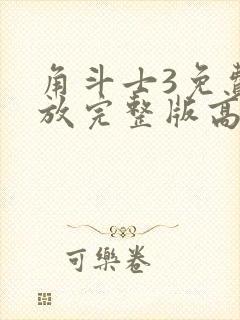 角斗士3免费
放完整版高
可樂卷